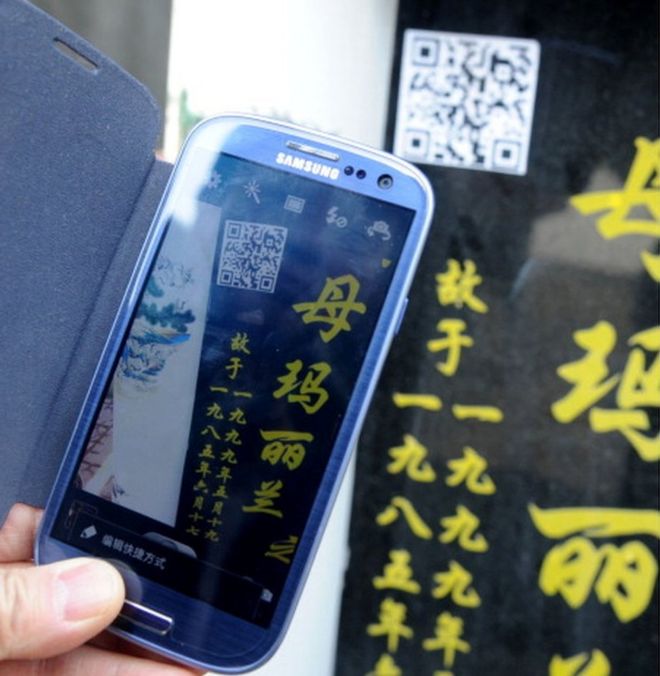 SAMSUNG
母玛丽兰立
故于
一九九九年五月十九
一九八五年六月十七
编辑快捷方式
母玛丽
故于
一九九九年
一九八五年六